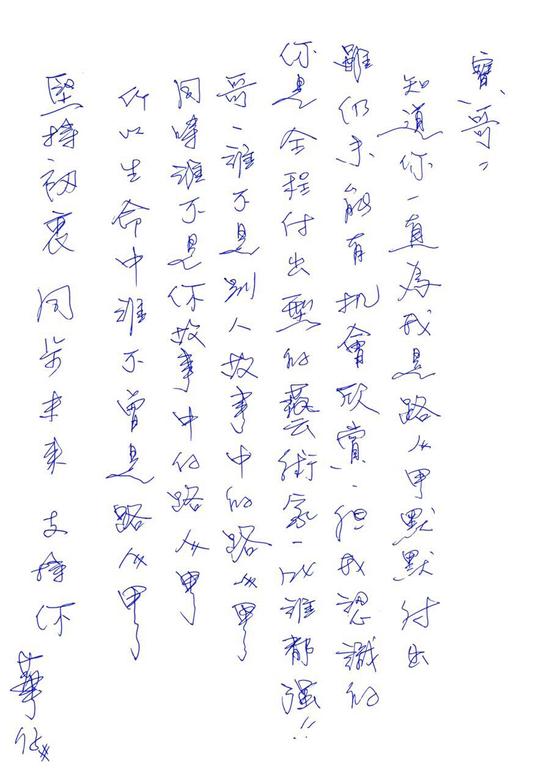 寶哥：
知道你一直為我是路人甲默默付出
雖仍未能有机會欣賞，但我認識的
你是全程付出型的藝術家，以誰都強!!
哥，誰不是別人故事中的路人甲
同時誰不是你故事中的路人甲
所以生命中誰不曾是路人甲
堅持初衷 同步未來 支持你
華仔